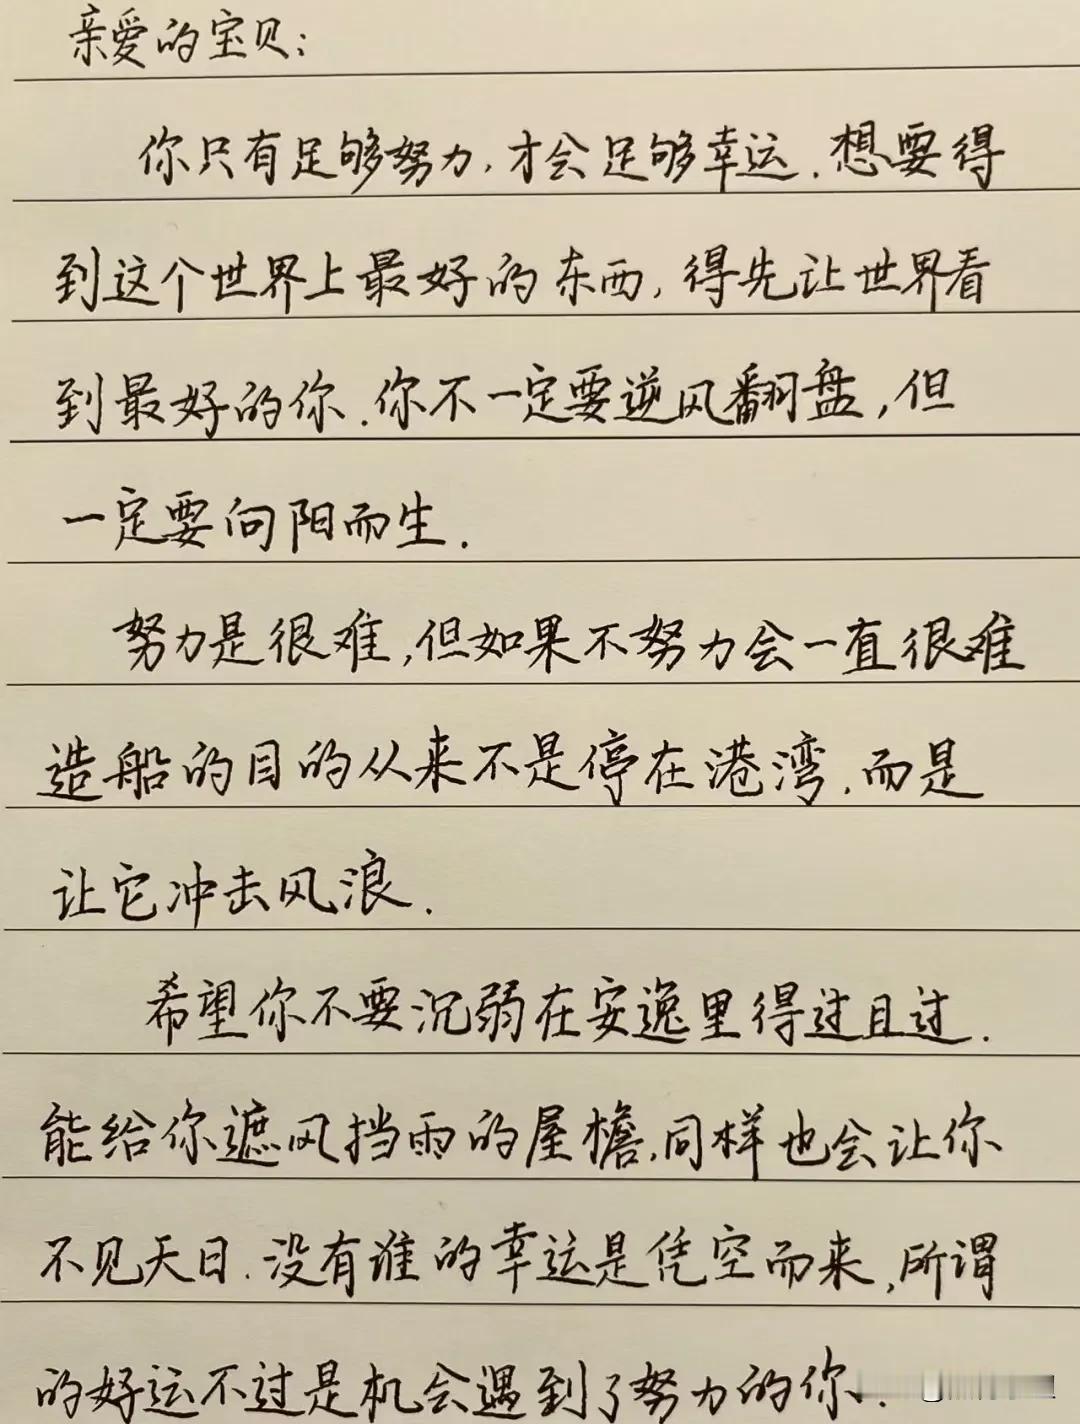 亲爱的宝贝：
你只有足够努力，才会足够幸运．想要得
到这个世界上最好的东西，得先让世界看
到最好的你．你不一定要逆风翻盘，但
一定要向阳而生．
努力是很难，但如果不努力会一直很难
造船的目的从来不是停在港湾．而是
让它冲击风浪．
希望你不要沉弱在安逸里得过且过．
能给你遮风挡雨的屋檐．同样也会让你
不见天日．没有谁的幸运是凭空而来，所谓
的好运不过是机会遇到了努力的你．